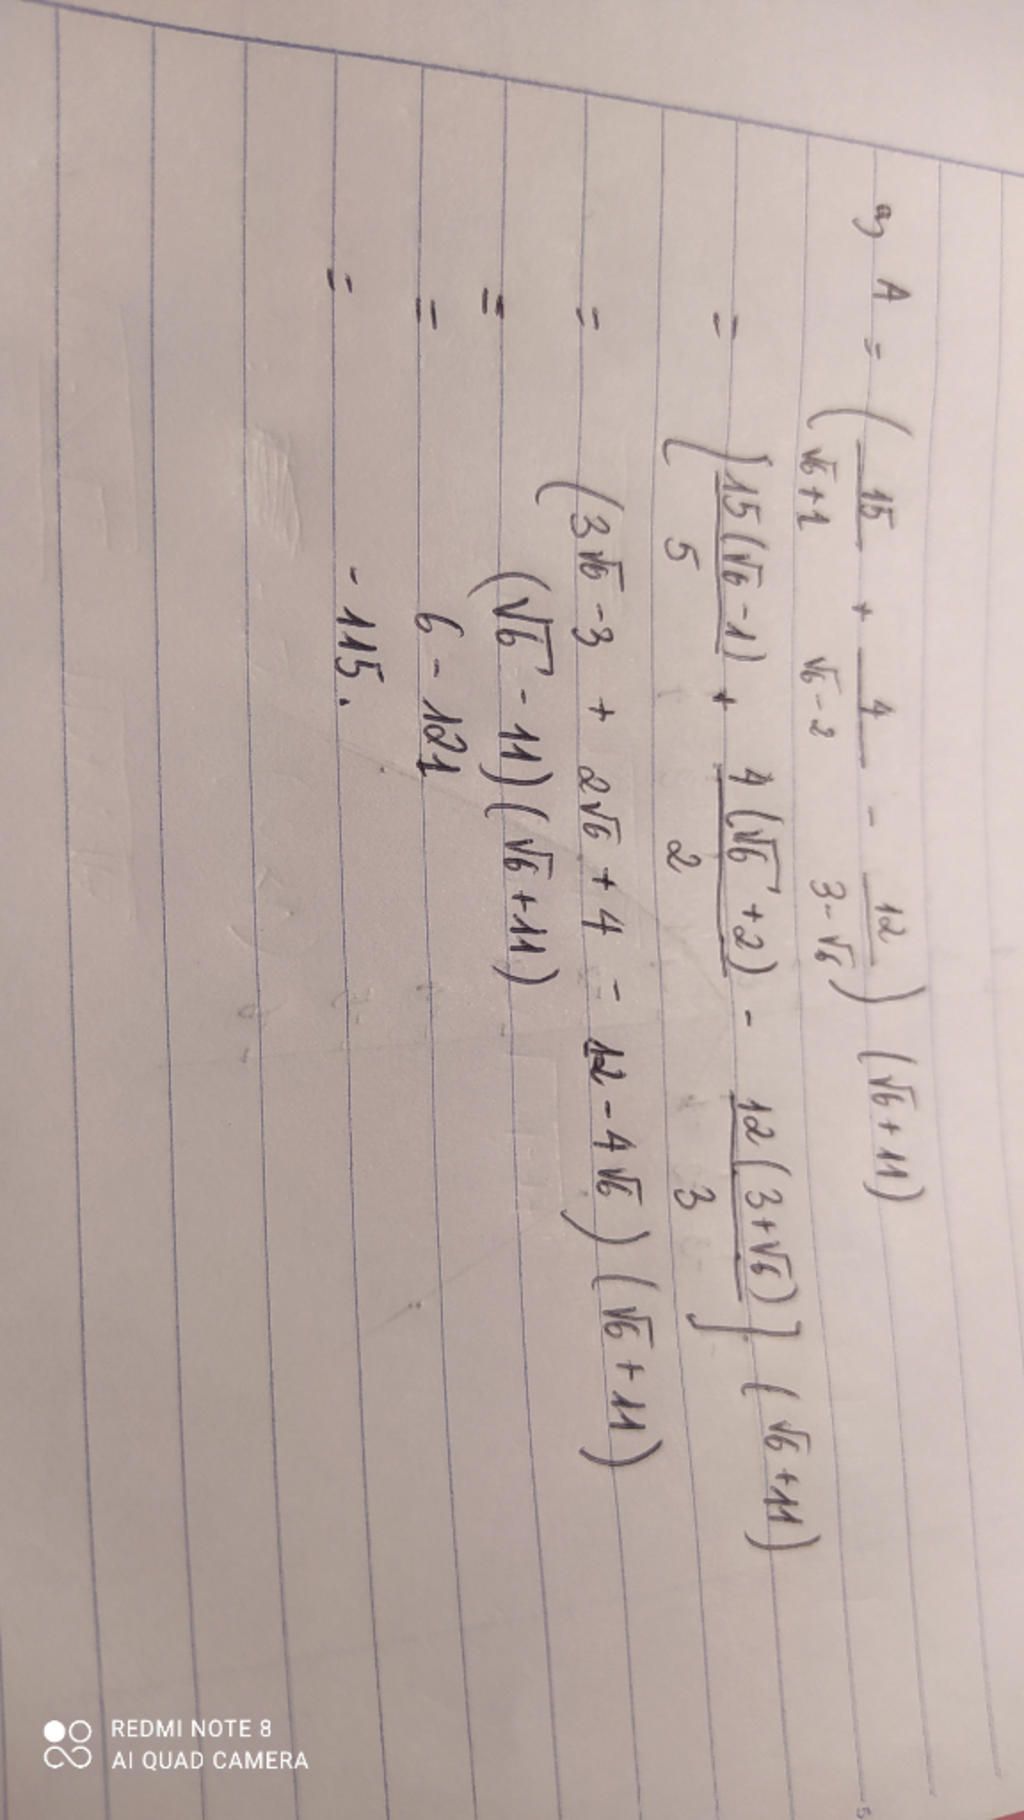 a) A = ( 15/(√6+1) + 4/(√6-2) - 12/(3-√6) ) (√6+11)
= [ 15(√6-1)/5 + 4(√6+2)/2 - 12(3+√6)/3 ] (√6+11)
= (3√6-3 + 2√6+4 - 12-4√6) (√6+11)
= (√6-11)(√6+11)
= 6-121
= -115.
REDMI NOTE 8
AI QUAD CAMERA